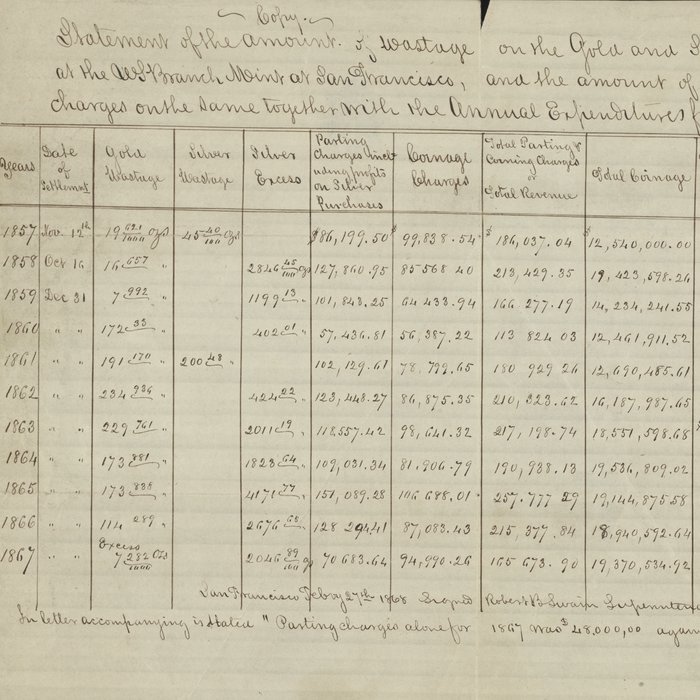 Copy.
Statement of the amount of Wastage on the Gold and
at the US Branch Mint at San Francisco, and the amount of
charges on the same together with the Annual Expenditures
Years | Date of Settlement | Gold Wastage | Silver Wastage | Silver Excess | Parting Charges including profits on Silver Purchases | Coinage Charges | Total Parting & Coining Charges or Total Revenue | Total Coinage
1857 | Nov. 12th | 19 621/1000 ozs | 45 40/100 ozs | | $86,199.50 | $99,838.54 | $186,037.04 | $12,540,000.00
1858 | Oct 16 | 16 657 " | | 2846 45/100 ozs | 127,860.95 | 85568 40 | 213,429.35 | 19,423,598.26
1859 | Dec 31 | 7 992 " | | 1199 13 " | 101,843.25 | 64 433.94 | 166 277.19 | 14,234,241.55
1860 | " " | 172 33 " | | 402 01 " | 57,436.81 | 56,387.22 | 113 824 03 | 12,461,911.52
1861 | " " | 191 170 " | 200 48 " | | 102,129.61 | 78,799.65 | 180 929 26 | 12,690,485.61
1862 | " " | 234 936 " | | 424 22 " | 123,448.27 | 86,875.35 | 210,323.62 | 16,187,987.65
1863 | " " | 229 761 " | | 2011 19 " | 118,557.42 | 98,641.32 | 217,198.74 | 18,551,598.68
1864 | " " | 173 881 " | | 1823 64 " | 109,031.34 | 81.906.79 | 190,938.13 | 19,536,809.02
1865 | " " | 173 838 " | | 4171 77 " | 151,089.28 | 106 688.01 | 257.777 29 | 19,144,875.58
1866 | " " | 114 289 " | | 2676 68 " | 128 294.41 | 87,083.43 | 215,377.84 | 18,940,592.64
1867 | " " | Excess 7 282/1000 ozs | | 2046 89/100 ozs | 70 683.64 | 94,990.26 | 165 673.90 | 19,370,534.92
San Francisco Feby 27th 1868 Signed Robert B Swain
In letter accompanying is stated " Parting charges alone for 1867 was $48,000,00 again